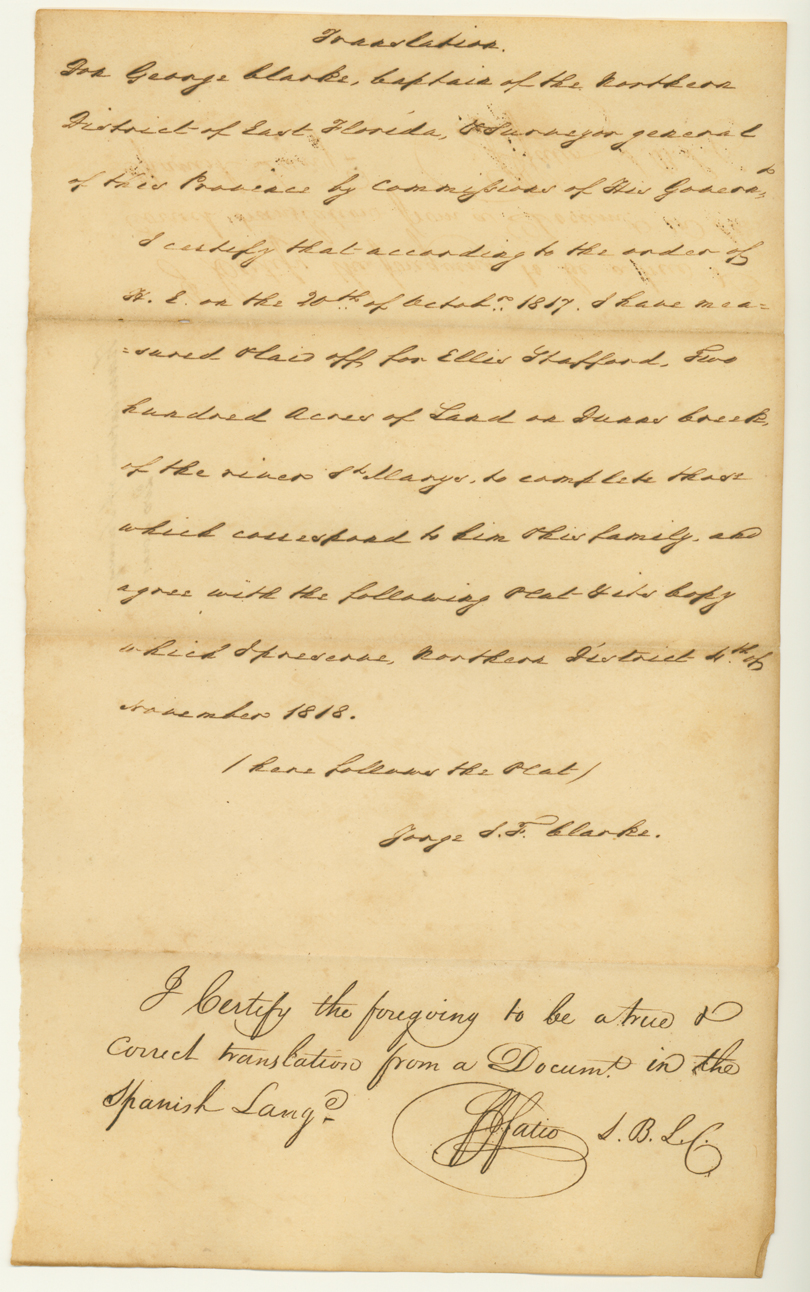 Translation.
Don George Clarke, Captain of the Northern
District of East Florida, & Surveyor general
of this Province by Commissions of His Governt.
I certify that according to the order of
H. E. on the 20th of Octobr. 1817. I have mea=
=sured & laid off for Ellis Stafford, Two
hundred Acres of Land on Dunns Creek,
of the river St Marys, to complete those
which correspond to him & his family, and
agree with the following Plat & its Copy
which I preserve, Northern District 4th of
November 1818.
/ here follows the Plat /
Jorge J. F. Clarke.
I Certify the foregoing to be a true &
correct translation from a Documt. in the
Spanish Lange.
Fatio S. B. L. C.